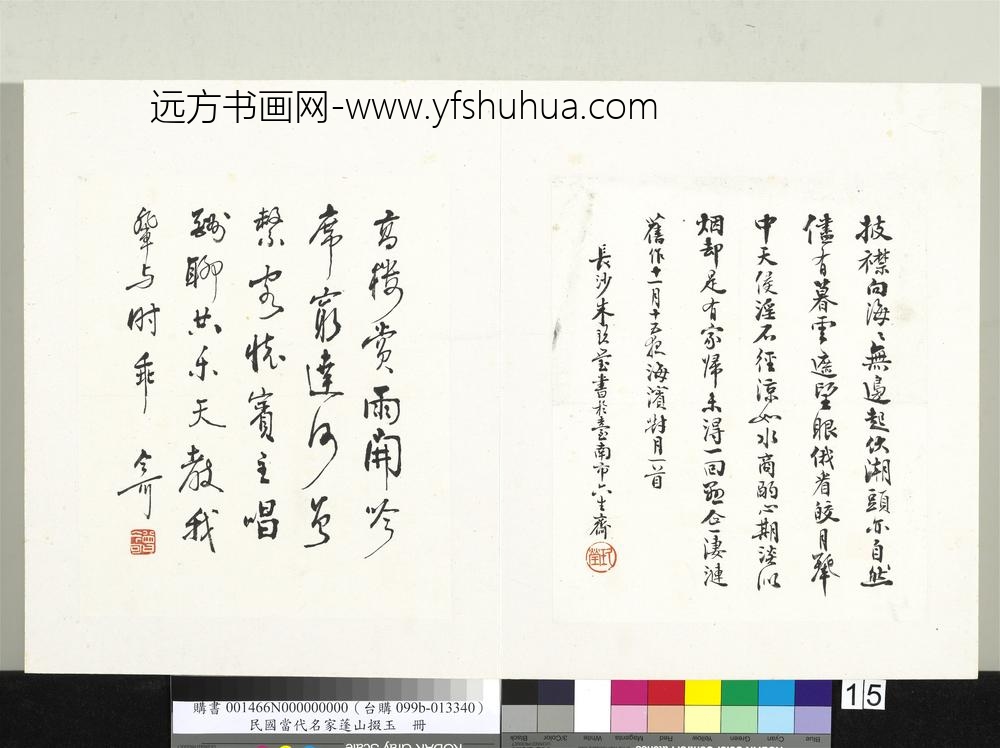 远方书画网-www.yfshuhua.com
披襟向海〻無邊起伏潮頭亦自然
儘有暮雲遮望眼俄看皎月舉
中天侵淫石徑涼如水商酌心期淡似
烟却是有家歸未得一回企一淒漣
舊作十一月十五夜海濱對月一首
長沙朱玖瑩書於臺南市六生齋
玖瑩
高樓賞雨開吟
席窮達何曾
繫客懷賓主唱
酬聊共乐天教我
輩与时乖 今可
購書 001466N000000000（台購 099b-013340）
民國當代名家蓬山掇玉 冊
15
Blue Cyan Green Yellow Red Magenta White 3/Color Black
KODAK Gray Scale